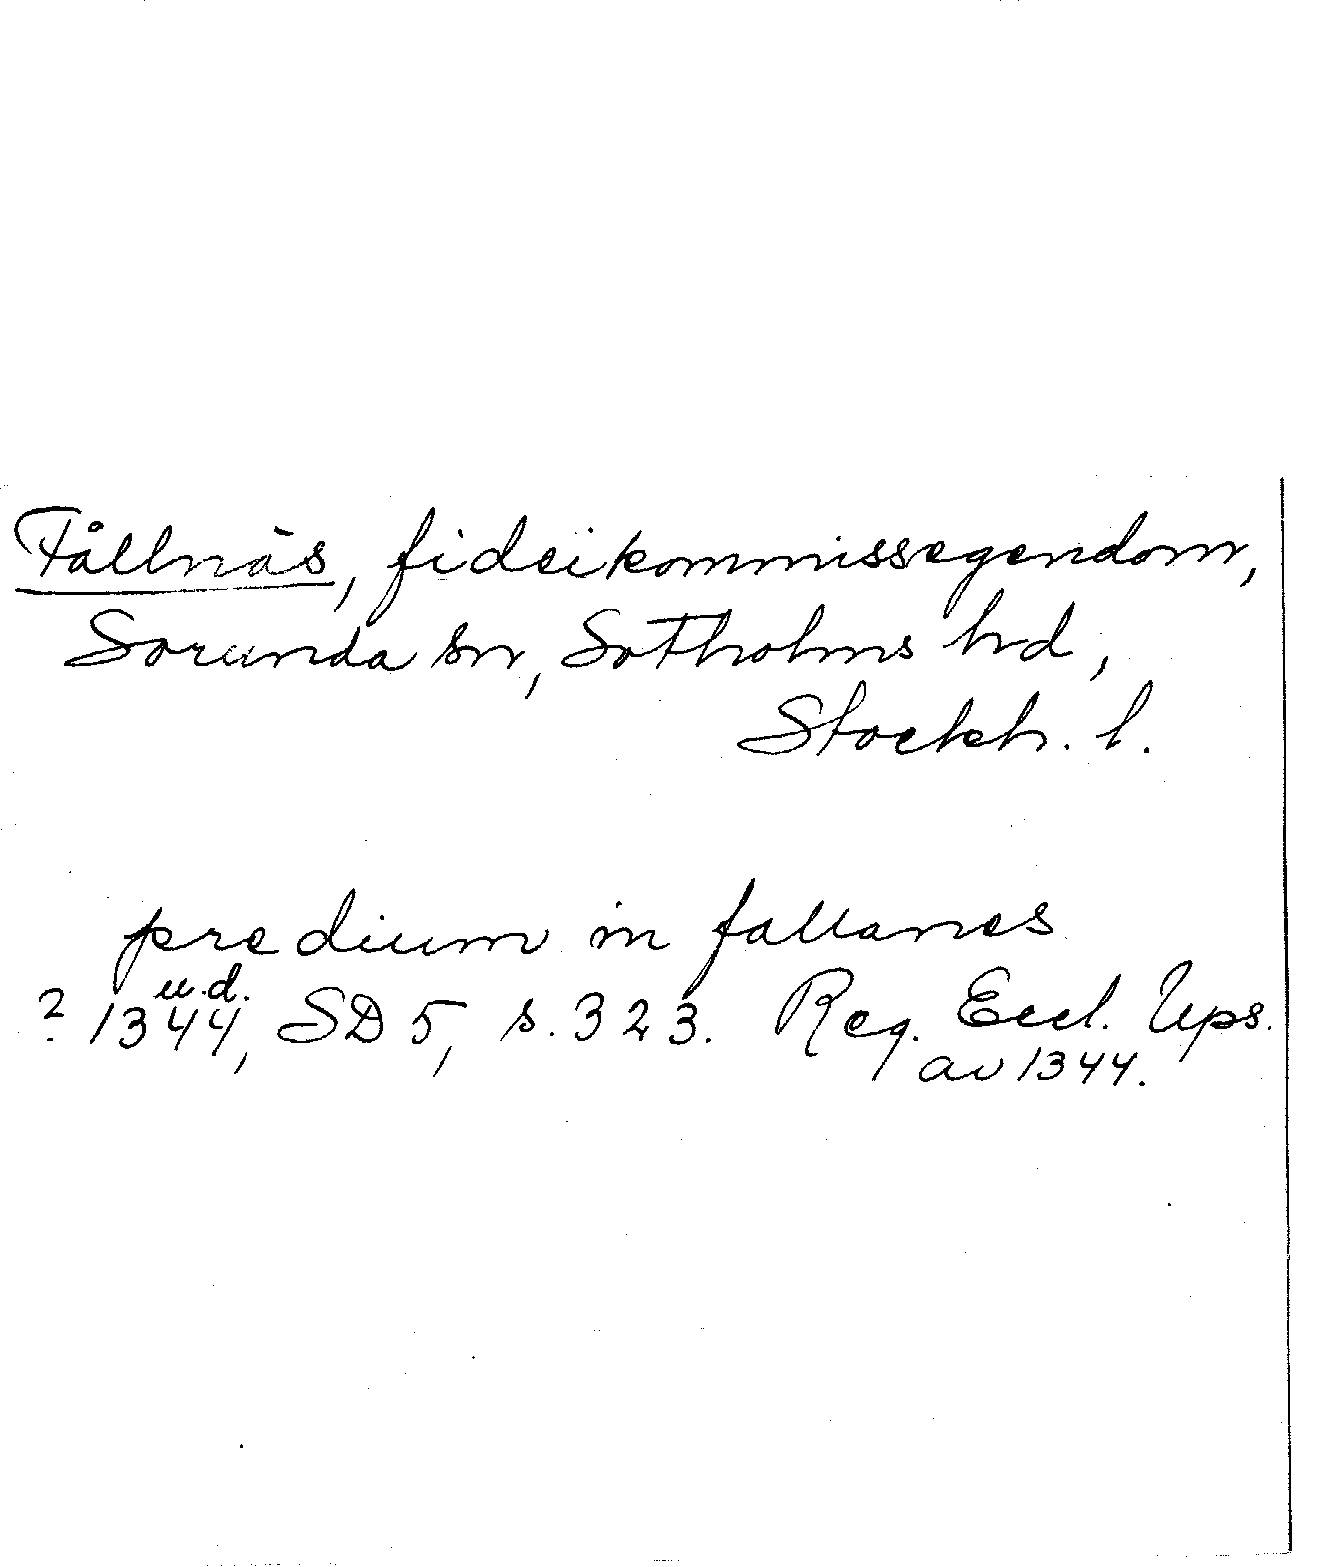 Fållnäs, fideikommissegendom,
Sorunda sn, Sotholms hd,
Stockh. l.
predium in fallanes
u.d.
? 1344, SD 5, s. 323. Reg. Eccl. Ups.
av 1344.